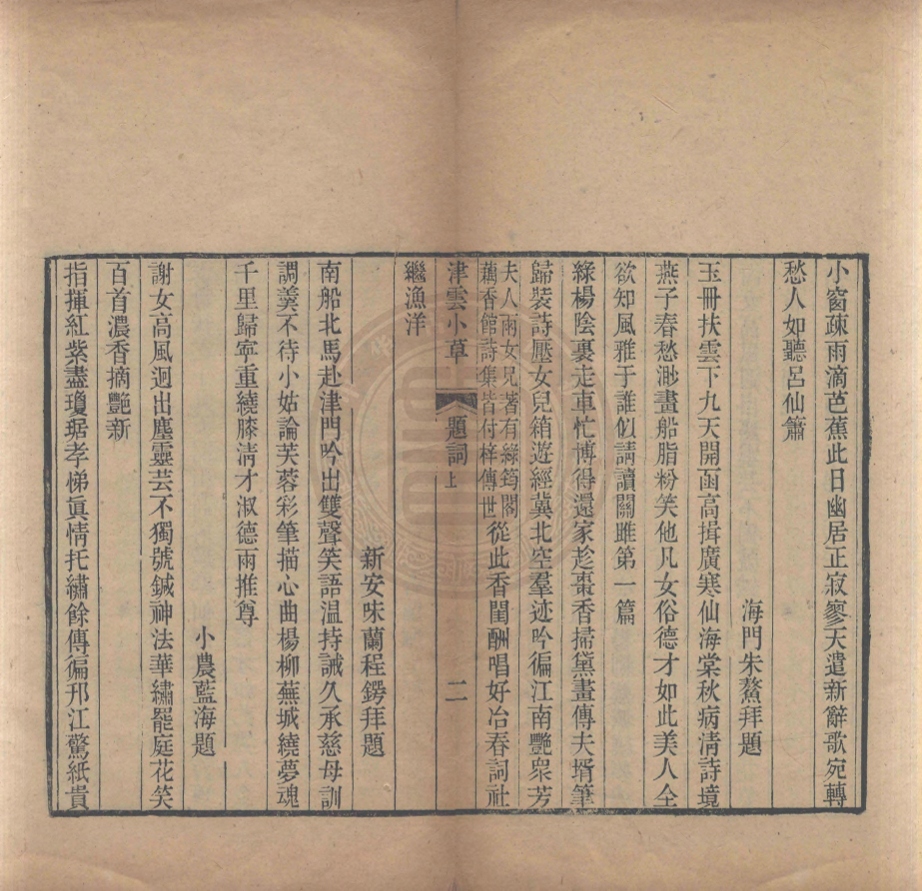 小窗疎雨滴芭蕉此日幽居正寂寥天遣新辭歌宛轉
愁人如聽呂仙簫
海門朱鰲拜題
玉冊扶雲下九天開函高揖廣寒仙海棠秋病淸詩境
燕子春愁渺畫船脂粉笑他凡女俗德才如此美人全
欲知風雅于誰似請讀關雎第一篇
綠楊陰裏走車忙博得還家趁棗香掃黛畫傳夫壻筆
歸裝詩壓女兒箱遊經冀北空羣迹吟徧江南艷衆芳
夫人兩女兄著有綠筠閣
藕香館詩集皆付梓傳世
從此香閨酬唱好冶春詞社
津雲小草
題詞上
二
繼漁洋
新安味蘭程鍔拜題
南船北馬赴津門吟出雙聲笑語温持誡久承慈母訓
調羹不待小姑論芙蓉彩筆描心曲楊柳蕪城繞夢魂
千里歸寧重繞膝淸才淑德兩推尊
小農藍海題
謝女高風迥出塵靈芸不獨號鍼神法華繡罷庭花笑
百首濃香摘艷新
指揮紅紫盡瓊琚孝悌眞情托繡餘傳徧邗江驚紙貴